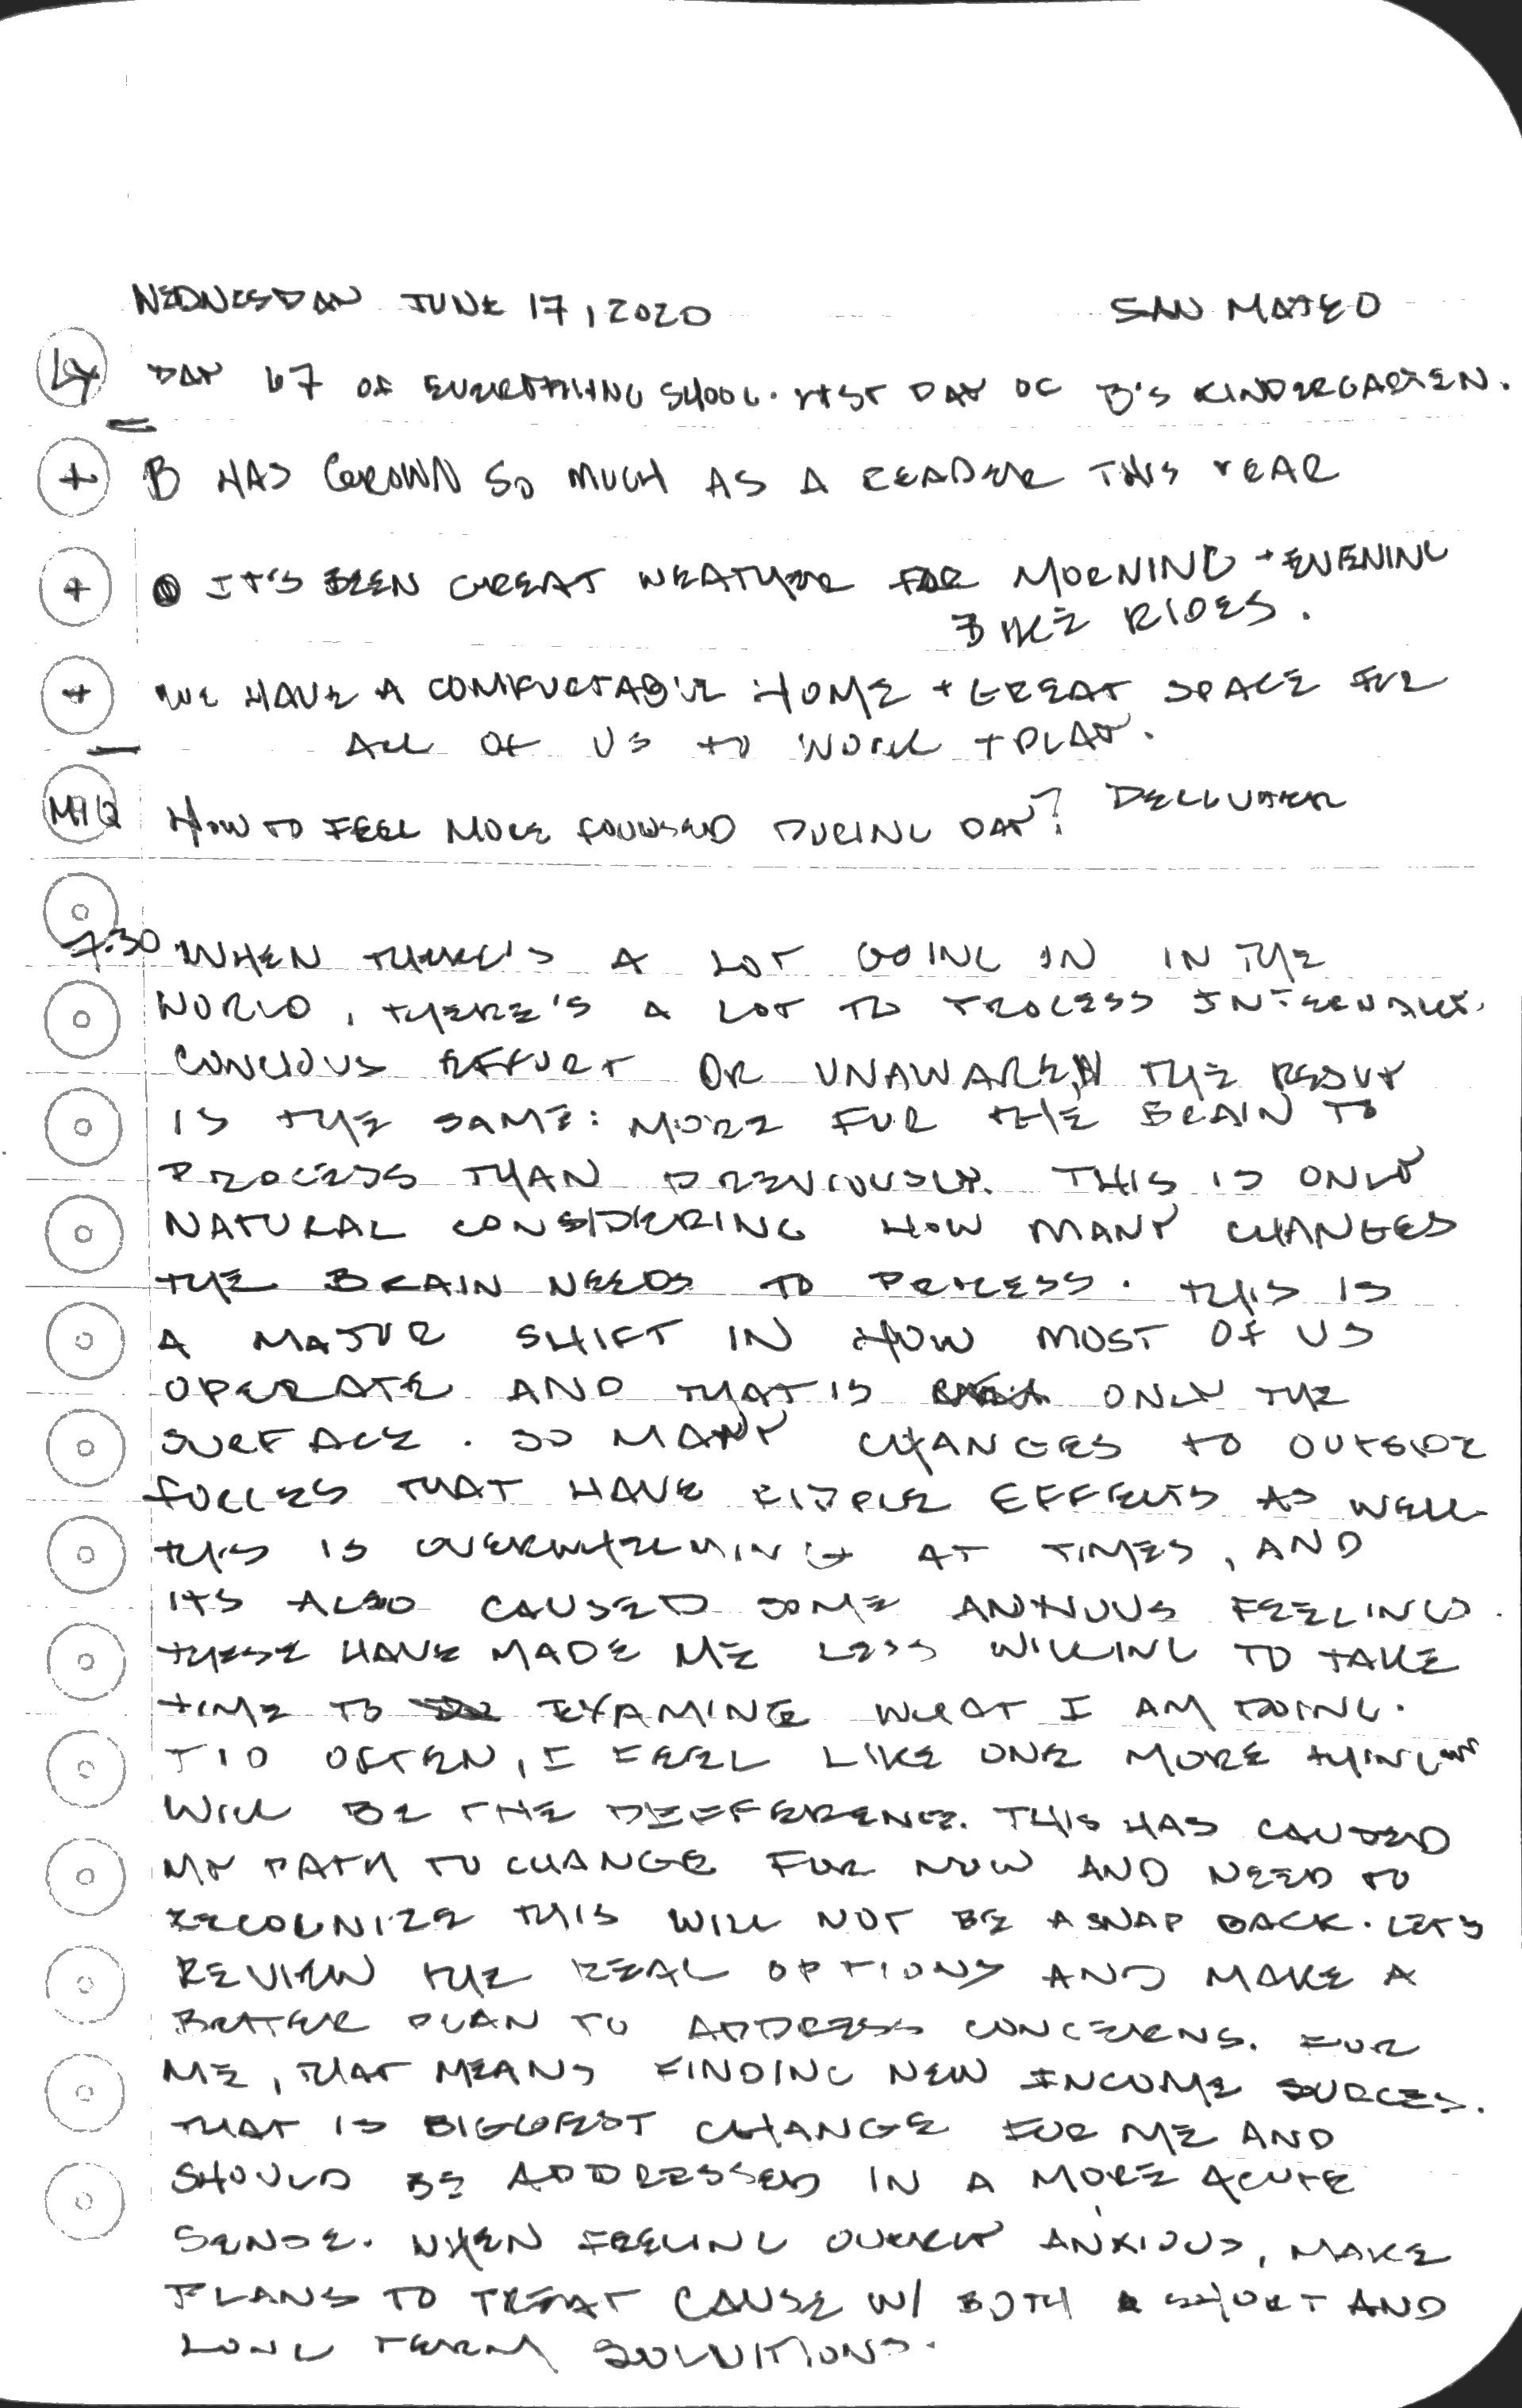 WEDNESDAY JUNE 17, 2020 SAN MATEO
DAY 67 OF EVERYTHING SCHOOL. LAST DAY OF B'S KINDERGARTEN.
+ B HAS GROWN SO MUCH AS A READER THIS YEAR
+ IT'S BEEN GREAT WEATHER FOR MORNING + EVENING
BIKE RIDES.
+ WE HAVE A COMFORTABLE HOME + GREAT SPACE FOR
ALL OF US TO WORK + PLAY.
MIQ HOW TO FEEL MORE FOCUSED DURING DAY?
7:30 WHEN THERE'S A LOT GOING ON IN THE
WORLD, THERE'S A LOT TO PROCESS INTERNALLY.
CONCIOUS EFFORT OR UNAWARE, THE RESULT
IS THE SAME: MORE FOR THE BRAIN TO
PROCESS THAN PREVIOUSLY. THIS IS ONLY
NATURAL CONSIDERING HOW MANY CHANGES
THE BRAIN NEEDS TO PROCESS. THIS IS
A MAJOR SHIFT IN HOW MOST OF US
OPERATE AND THAT IS ONLY THE
SURFACE. SO MANY CHANGES TO OUTSIDE
FORCES THAT HAVE RIPPLE EFFECTS AS WELL.
THIS IS OVERWHELMING AT TIMES, AND
ITS ALSO CAUSED SOME ANXIOUS FEELINGS.
THESE HAVE MADE ME LESS WILLING TO TAKE
TIME TO EXAMINE WHAT I AM DOING.
TOO OFTEN, I FEEL LIKE ONE MORE THING
WILL BE THE DIFFERENCE. THIS HAS CAUSED
MY PATH TO CHANGE FOR NOW AND NEED TO
RECOGNIZE THIS WILL NOT BE A SNAP BACK. LET'S
REVIEW THE REAL OPTIONS AND MAKE A
BETTER PLAN TO ADDRESS CONCERNS. FOR
ME, THAT MEANS FINDING NEW INCOME SOURCES.
THAT IS BIGGEST CHANGE FOR ME AND
SHOULD BE ADDRESSED IN A MORE ACUTE
SENSE. WHEN FEELING OVERLY ANXIOUS, MAKE
PLANS TO TREAT CAUSE W/ BOTH SHORT AND
LONG TERM SOLUTIONS.